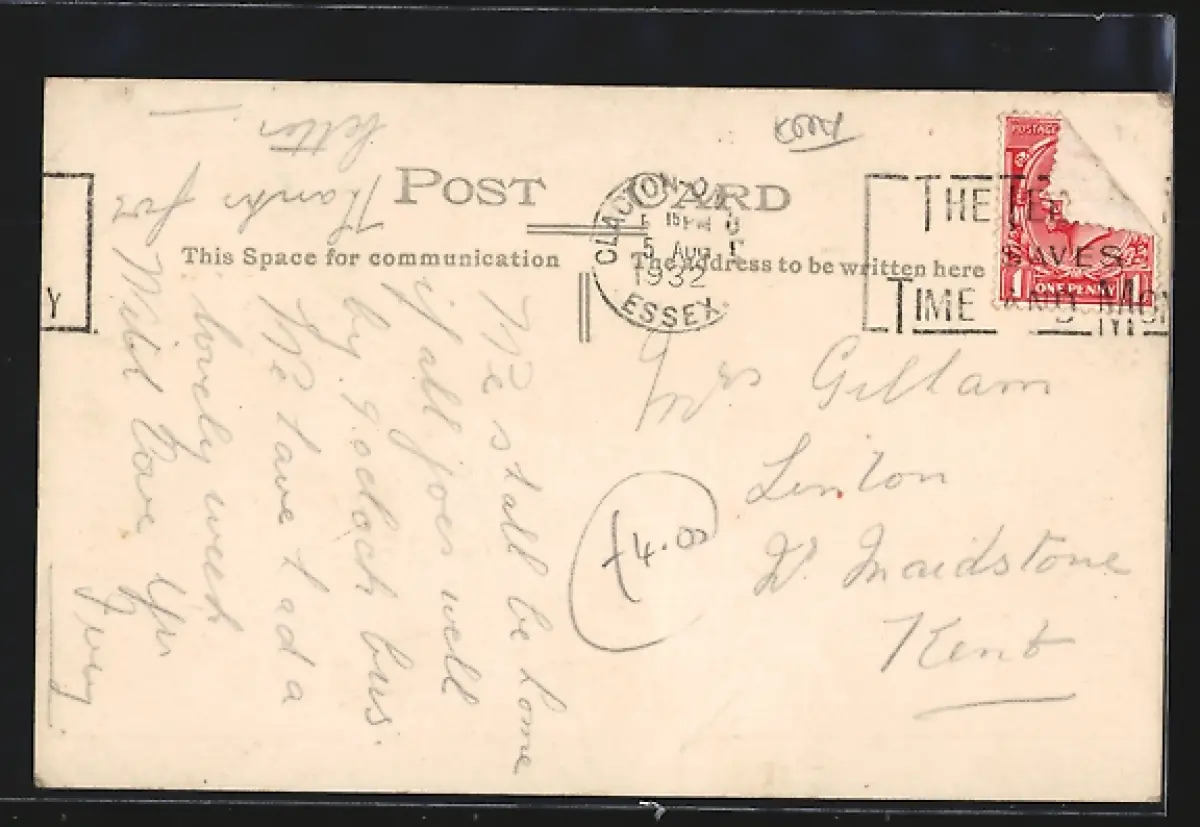 POST CARD
This Space for communication
The Address to be written here
CLACTON-ON
15 PM
5 AUG
1932
ESSEX
THE TE
SAVES
TIME AND MON
Y
POSTAGE
1 ONE PENNY 1
We shall be home
if all goes well
by 9 oclock bus.
We have had a
lovely week
With love
Thanks for
letter
Mrs Gillam
Linton
Nr Maidstone
Kent
£4.00